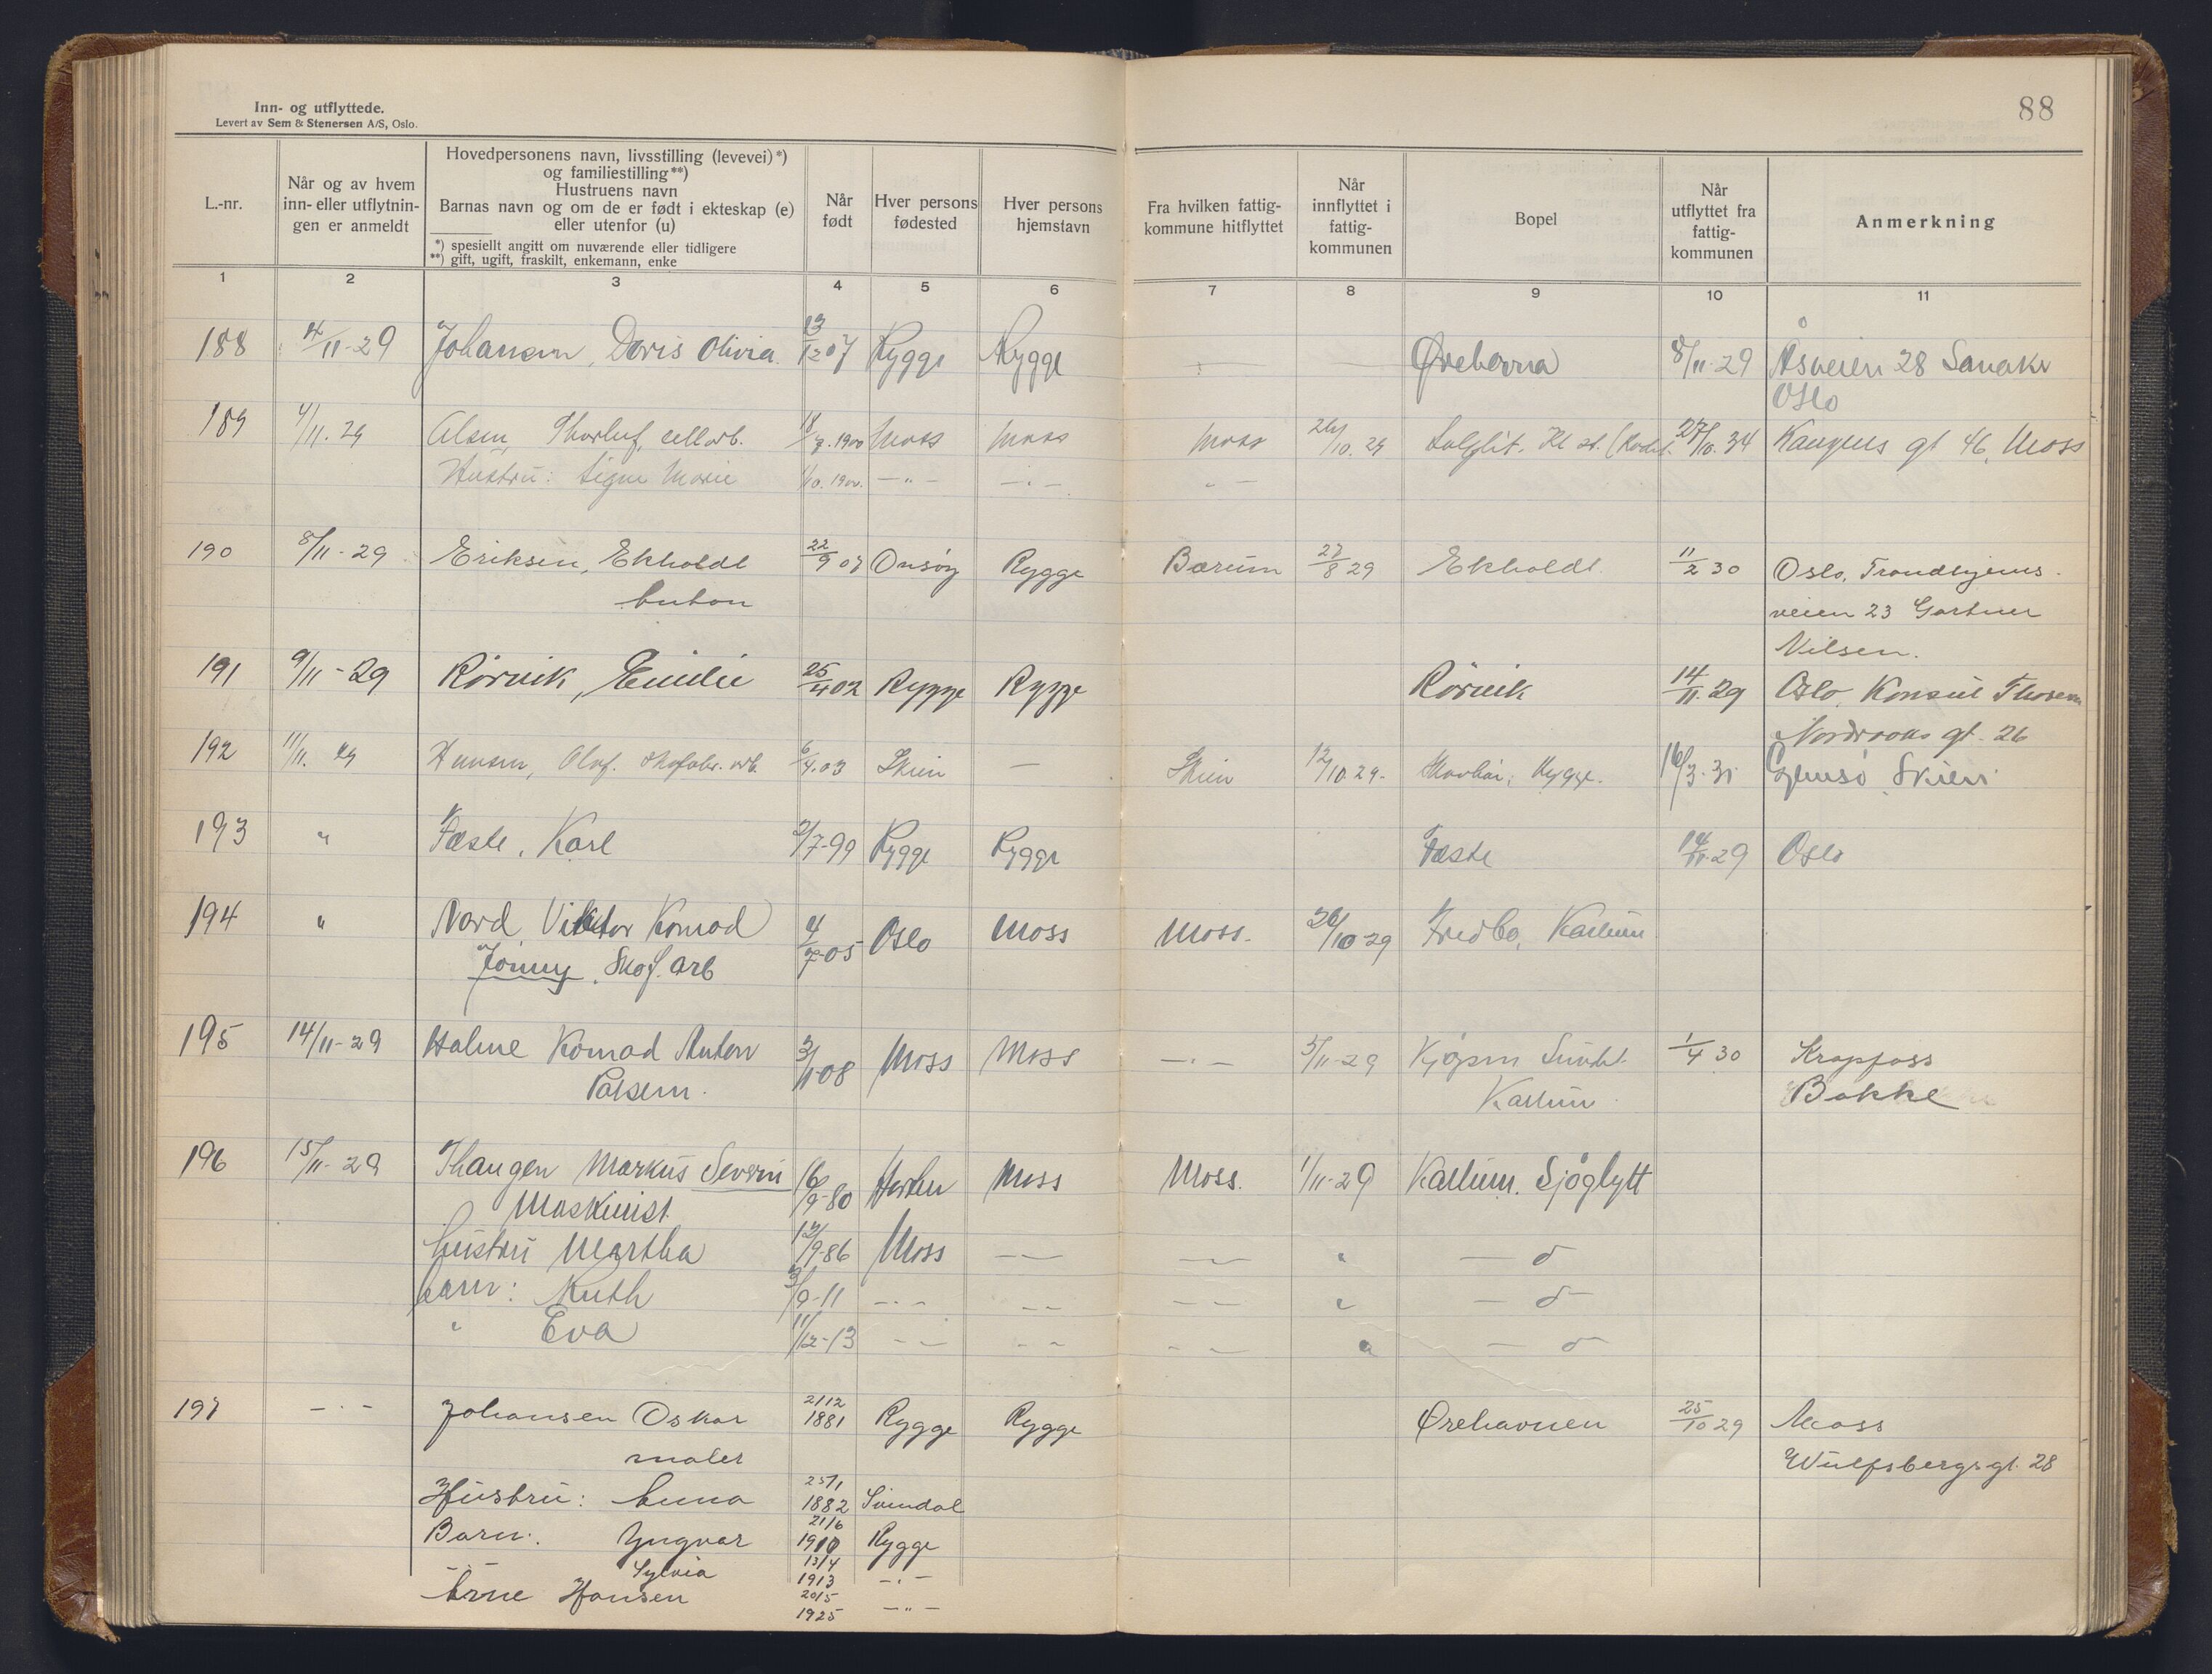 Inn- og utflyttede.
Levert av Sem & Stenersen A/S, Oslo.
88
L.-nr.
Når og av hvem
inn- eller utflytnin-
gen er anmeldt
Hovedpersonens navn, livsstilling (levevei) *)
og familiestilling **)
Hustruens navn
Barnas navn og om de er født i ekteskap (e)
eller utenfor (u)
*) spesiellt angitt om nuværende eller tidligere
**) gift, ugift, fraskilt, enkemann, enke
Når
født
Hver persons
fødested
Hver persons
hjemstavn
Fra hvilken fattig-
kommune hitflyttet
Når
innflyttet i
fattig-
kommunen
Bopel
Når
utflyttet fra
fattig-
kommunen
Anmerkning
1 2 3 4 5 6 7 8 9 10 11
188 4/11-29 Johansen, Doris Olivia 13/12 07 Rygge Rygge 8/11-29 Åsveien 28
Oslo
189 4/11.29 Olsen, Thorluf, cellarb. 18/7.1900 Moss Moss Moss 26/10.29 27/10.34 gt 46, Moss
Hustru: Signe Marie 1/10.1900. -"- -"- -"-
190 8/11-29 Eriksen, Ekholdt 22/9 07 Onsøy Rygge Bærum 27/8 29 Ekholdt 11/2 30 Oslo, Trondhjems-
Anton veien 23 Gartner
Nilsen.
191 9/11-29 Rörvik, Emilie 25/4 02 Rygge Rygge Rörvik 14/11.29 Oslo, Konsul Thoresen
Nordraaks gt. 26
192 11/11. 29 Hansen, Olaf. Skofabr. arb. 6/4.03 Skien — Skien 12/10.29. Rygge. 16/3.31 Gjemsö Skien
193 " Fæste, Karl 2/7-99 Rygge Rygge Fæste 14/11-29 Oslo
194 " Nord Viktor Konrad 4/7-05 Oslo Moss Moss. 26/10-29 Fredbo, Karlum
Jonny, Skof. arb
195 14/11-29 Holme Konrad Anton 3/11-08 Moss Moss -"- 5/11-29 1/4 30 Krapfoss
Karlum Bakke
196 15/11-29 Thaugen Markus Severin 16/9-80 Horten Moss Moss. 1/11-29 Karlum. Sjøglytt
Maskinist
hustru Martha 12/9-86 Moss -"- -"- " - d -
barn: Ruth 3/9-11 -"- -"- -"- " - d -
" Eva 11/12-13 -"- -"- -"- " - d -
197 -"- Johansen Oskar 21/12 1881 Rygge Rygge Ørehavnen 25/10 29 Moss
maler Wulfsbergsgt. 28
Hustru: Anna 25/1 1882 Svindal
Barn: Yngvar 21/6 1910 Rygge
-"- Sylvia 13/4 1913 -"-
Arne Hansen 20/5 1925 -"-